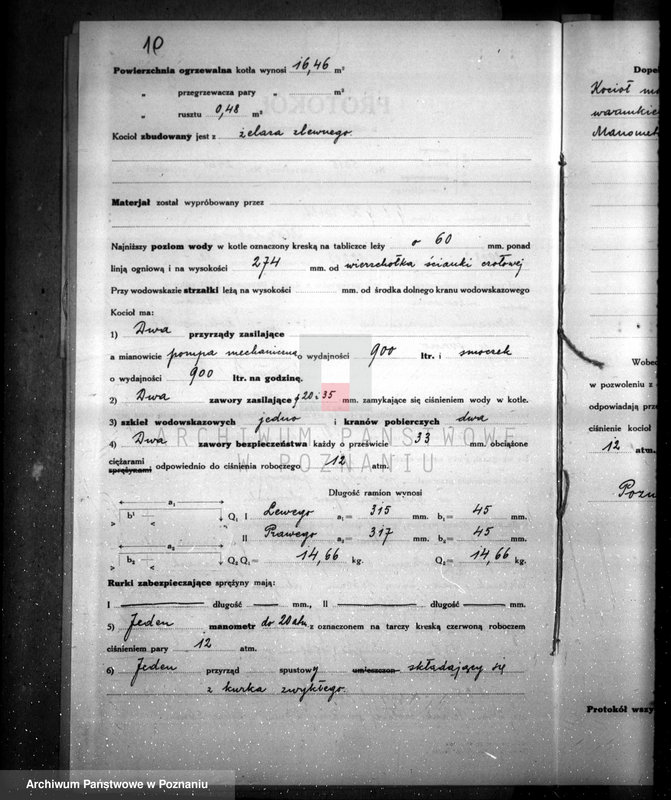 10
Powierzchnia ogrzewalna kotła wynosi 16,46 m²
„ przegrzewacza pary „ m²
„ rusztu 0,48 m²
Kocioł zbudowany jest z żelaza zlewnego.
Materjał został wypróbowany przez
Najniższy poziom wody w kotle oznaczony kreską na tabliczce leży o 60 mm. ponad
linją ogniową i na wysokości 274 mm. od wierzchołka ścianki czołowej
Przy wodowskazie strzałki leżą na wysokości mm. od środka dolnego kranu wodowskazowego
Kocioł ma:
1) Dwa przyrządy zasilające
a mianowicie pompa mechaniczna o wydajności 900 ltr. i smoczek
o wydajności 900 ltr. na godzinę.
2) Dwa zawory zasilające ϕ 20 i 35 mm. zamykające się ciśnieniem wody w kotle.
3) szkieł wodowskazowych jedno i kranów pobierczych dwa
4) Dwa zawory bezpieczeństwa każdy o prześwicie 33 mm. obciążone
ciężarami
sprężynami odpowiednio do ciśnienia roboczego 12 atm.
Długość ramion wynosi
a₁ b¹ Q₁ I Lewego a₁= 315 mm. b₁= 45 mm.
II Prawego a₂= 317 mm. b₂= 45 mm.
a₂ b₂ Q₂ Q₁= 14,66 kg. Q₂= 14,66 kg.
Rurki zabezpieczające sprężyny mają:
I długość mm., II długość mm.
5) Jeden manometr do 20 atn z oznaczonem na tarczy kreską czerwoną roboczem
ciśnieniem pary 12 atm.
6) Jeden przyrząd spustowy umieszczon składający się
z kurka zwykłego.
Dopeł
Kocioł
warunki
Manomet
Wobec
w pozwoleniu z d
odpowiadają prze
ciśnienie kocioł
12 atm.
Pozn
Protokół wszy
ARCHIWUM PAŃSTWOWE
W POZNANIU
Archiwum Państwowe w Poznaniu